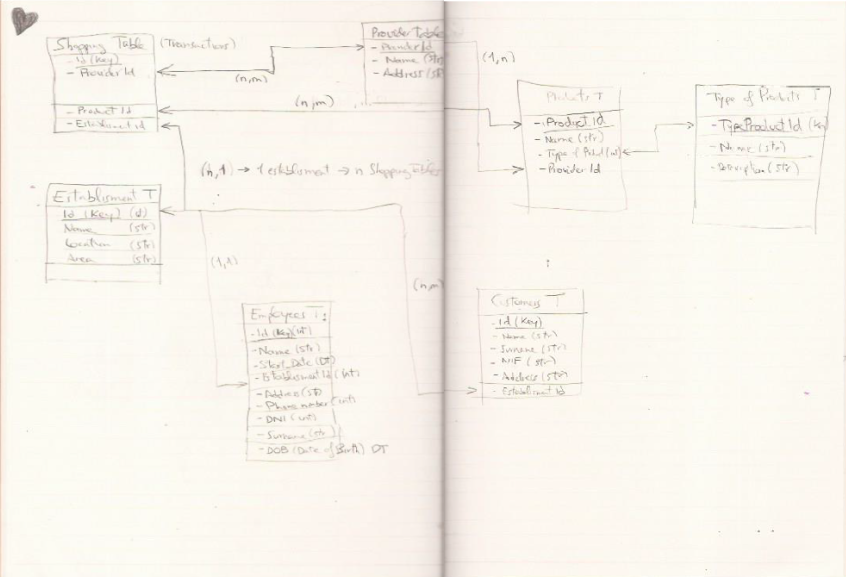 Shopping Table (Transactions)
- Id (Key)
- ProviderId
- Product Id
- Establisment id
Provider Table
- ProviderId
- Name (str)
- Address (str
(n,m)
(n,m)
(1,n)
Products T
- Product Id
- Name (str)
- Type of Product (int)
- Provider Id
Type of Products T
- TypeProduct Id (Key
- Name (str)
- Description (str)
(n,1) → 1 establishment → n Shopping Tables
Establisment T
Id (Key) (int)
Name (str)
Location (str)
Area (str)
(1,1)
(n,m)
Employees T:
- Id (Key) (int)
- Name (str)
- Start_Date (DT)
- Establisment Id (int)
- Address (str)
- Phone number (int)
- DNI (int)
- Surname (str)
- DOB (Date of Birth) DT
Customers T
- Id (Key)
- Name (str)
- Surname (str)
- NIF (str)
- Address (str)
- Establisment Id